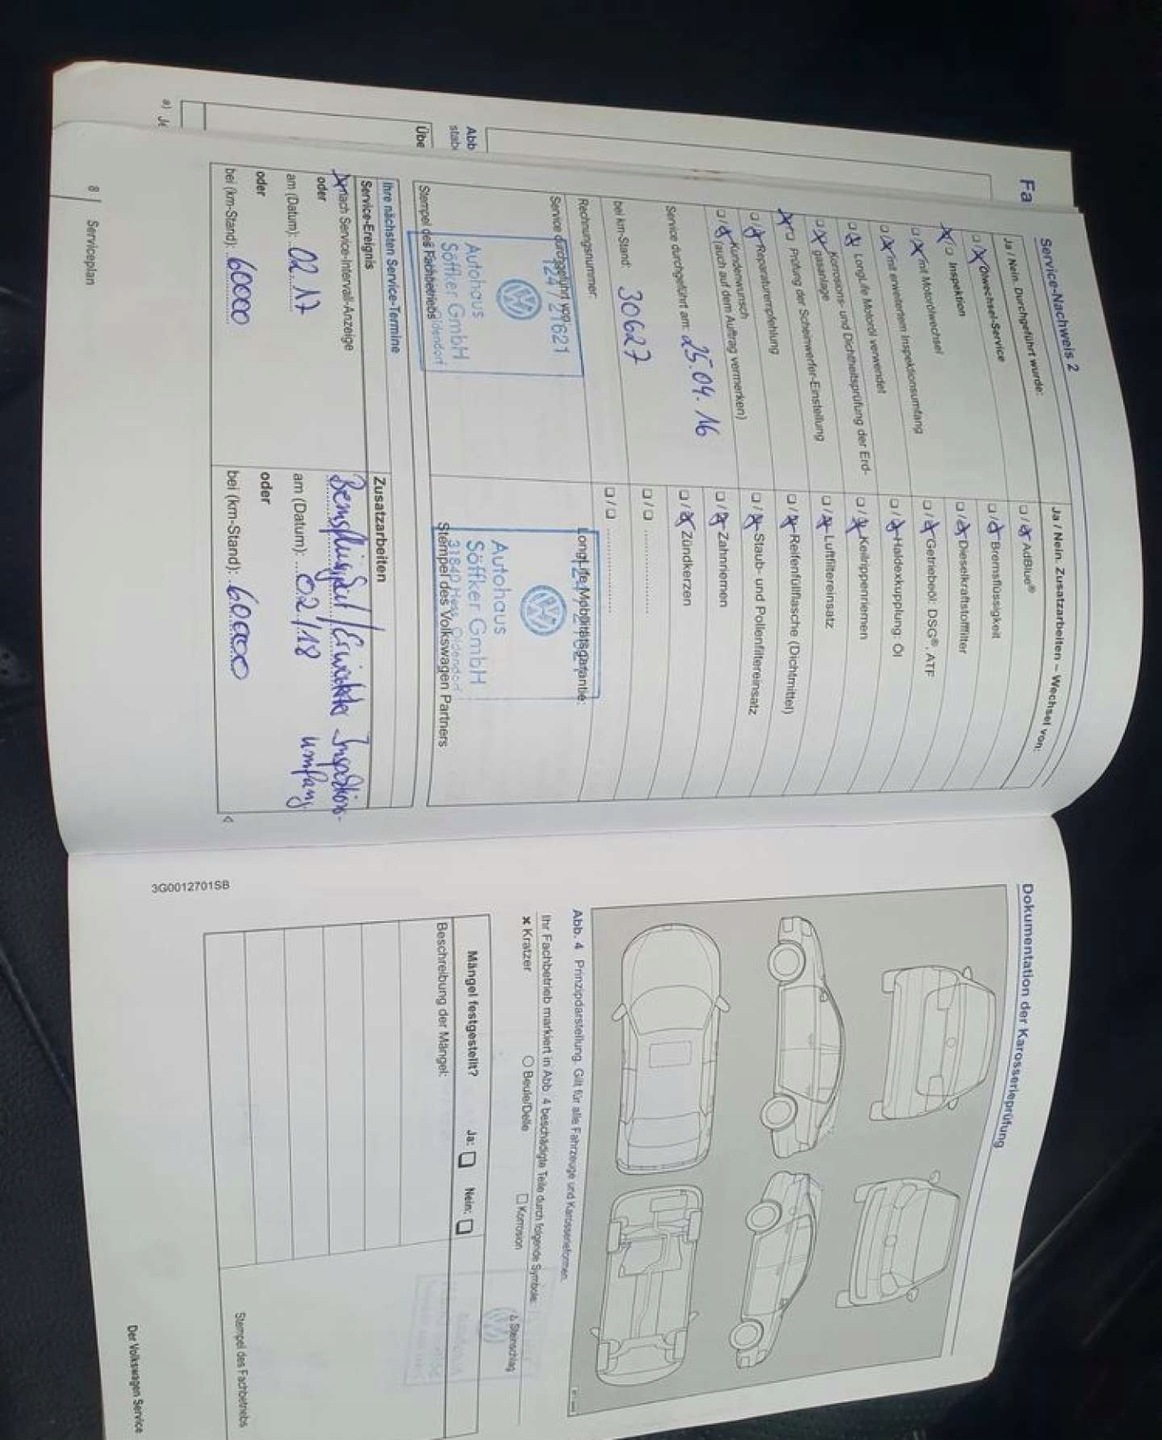 Fa
Abb
stabi
Übe
a) Je
Service-Nachweis 2
Ja / Nein. Durchgeführt wurde:
Ölwechsel-Service
Inspektion
mit Motorölwechsel
mit erweitertem Inspektionsumfang
LongLife Motoröl verwendet
Korrosions- und Dichtheitsprüfung der Erd-
gasanlage
Prüfung der Scheinwerfer-Einstellung
Reparaturempfehlung
Kundenwunsch
(auch auf dem Auftrag vermerken)
Service durchgeführt am: 25.04.16
bei km-Stand: 30627
Rechnungsnummer:
Service durchgeführt von:
124 / 21621
Autohaus
Söffker GmbH
Oldendorf
Stempel des Fachbetriebs
Ja / Nein. Zusatzarbeiten – Wechsel von:
AdBlue®
Bremsflüssigkeit
Dieselkraftstofffilter
Getriebeöl: DSG®, ATF
Haldexkupplung: Öl
Keilrippenriemen
Luftfiltereinsatz
Reifenfüllflasche (Dichtmittel)
Staub- und Pollenfiltereinsatz
Zahnriemen
Zündkerzen
LongLife-Mobilitätsgarantie:
Autohaus
Söffker GmbH
31840 Hess. Oldendorf
Stempel des Volkswagen Partners
Ihre nächsten Service-Termine
Service-Ereignis
nach Service-Intervall-Anzeige
oder
am (Datum): 02.17
oder
bei (km-Stand): 60000
Zusatzarbeiten
Bremsflüssigkeit / Erweiterter Inspektions-
umfang
am (Datum): 02/18
oder
bei (km-Stand): 60.000
8 | Serviceplan
Dokumentation der Karosserieprüfung
Abb. 4 Prinzipdarstellung. Gilt für alle Fahrzeuge und Karosserieformen.
Ihr Fachbetrieb markiert in Abb. 4 beschädigte Teile durch folgende Symbole:
× Kratzer ○ Beule/Delle □ Korrosion ∆ Steinschlag
Mängel festgestellt? Ja: □ Nein: □
Beschreibung der Mängel:
Stempel des Fachbetriebs
3G0012701SB
Der Volkswagen Service